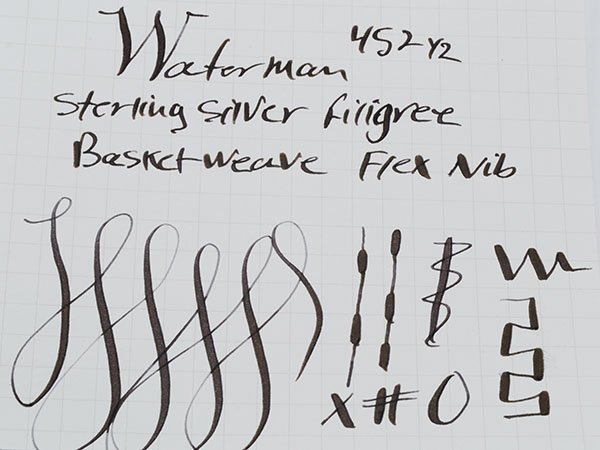 Waterman 452 1/2
Sterling Silver Filigree
Basketweave Flex Nib
X # O